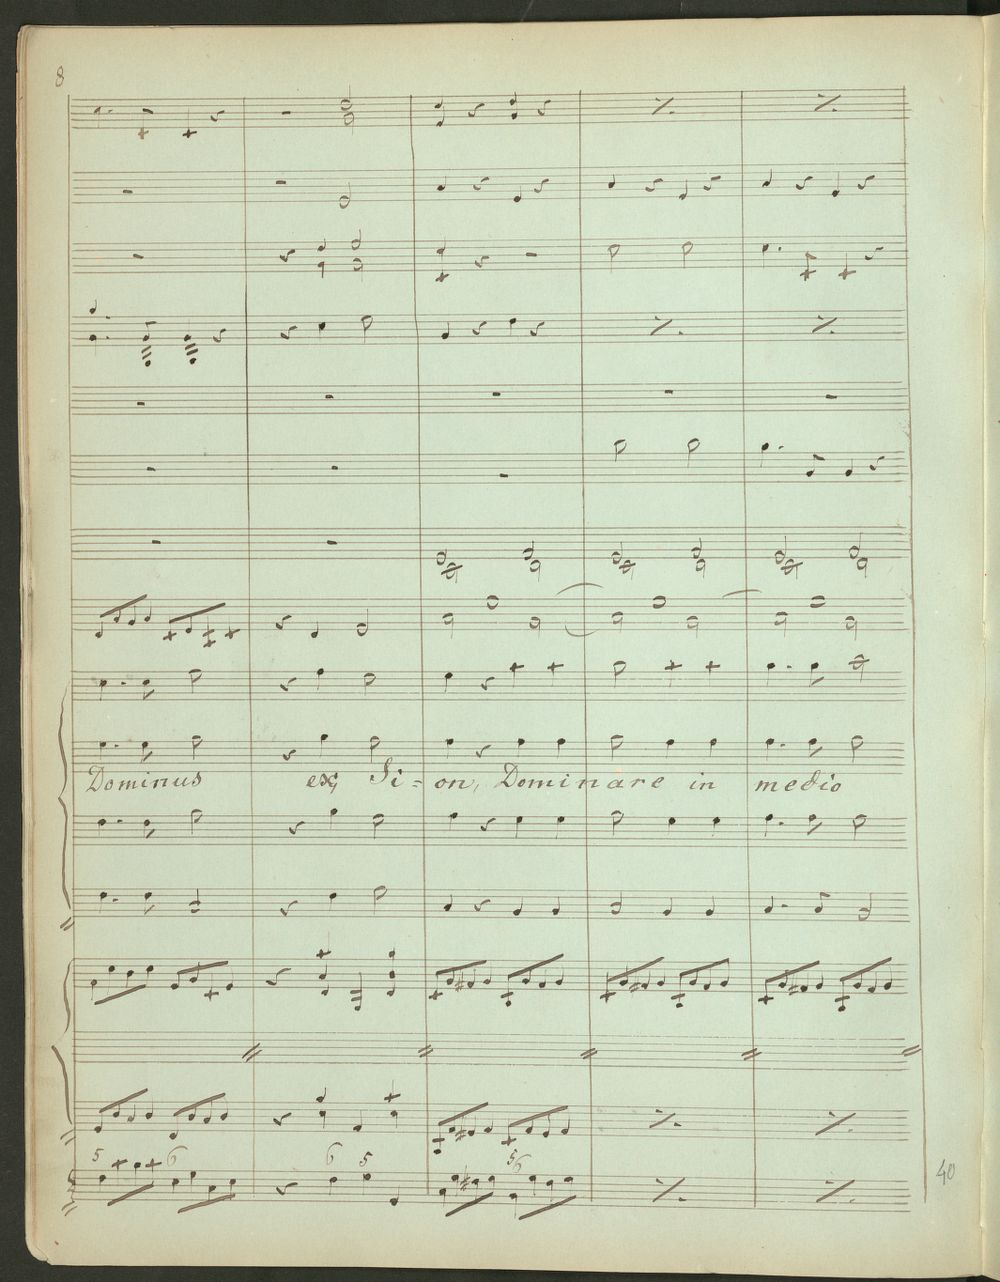 8
Dominus ex Si=on, Dominare in medio
5 6 6 5 5 6
40